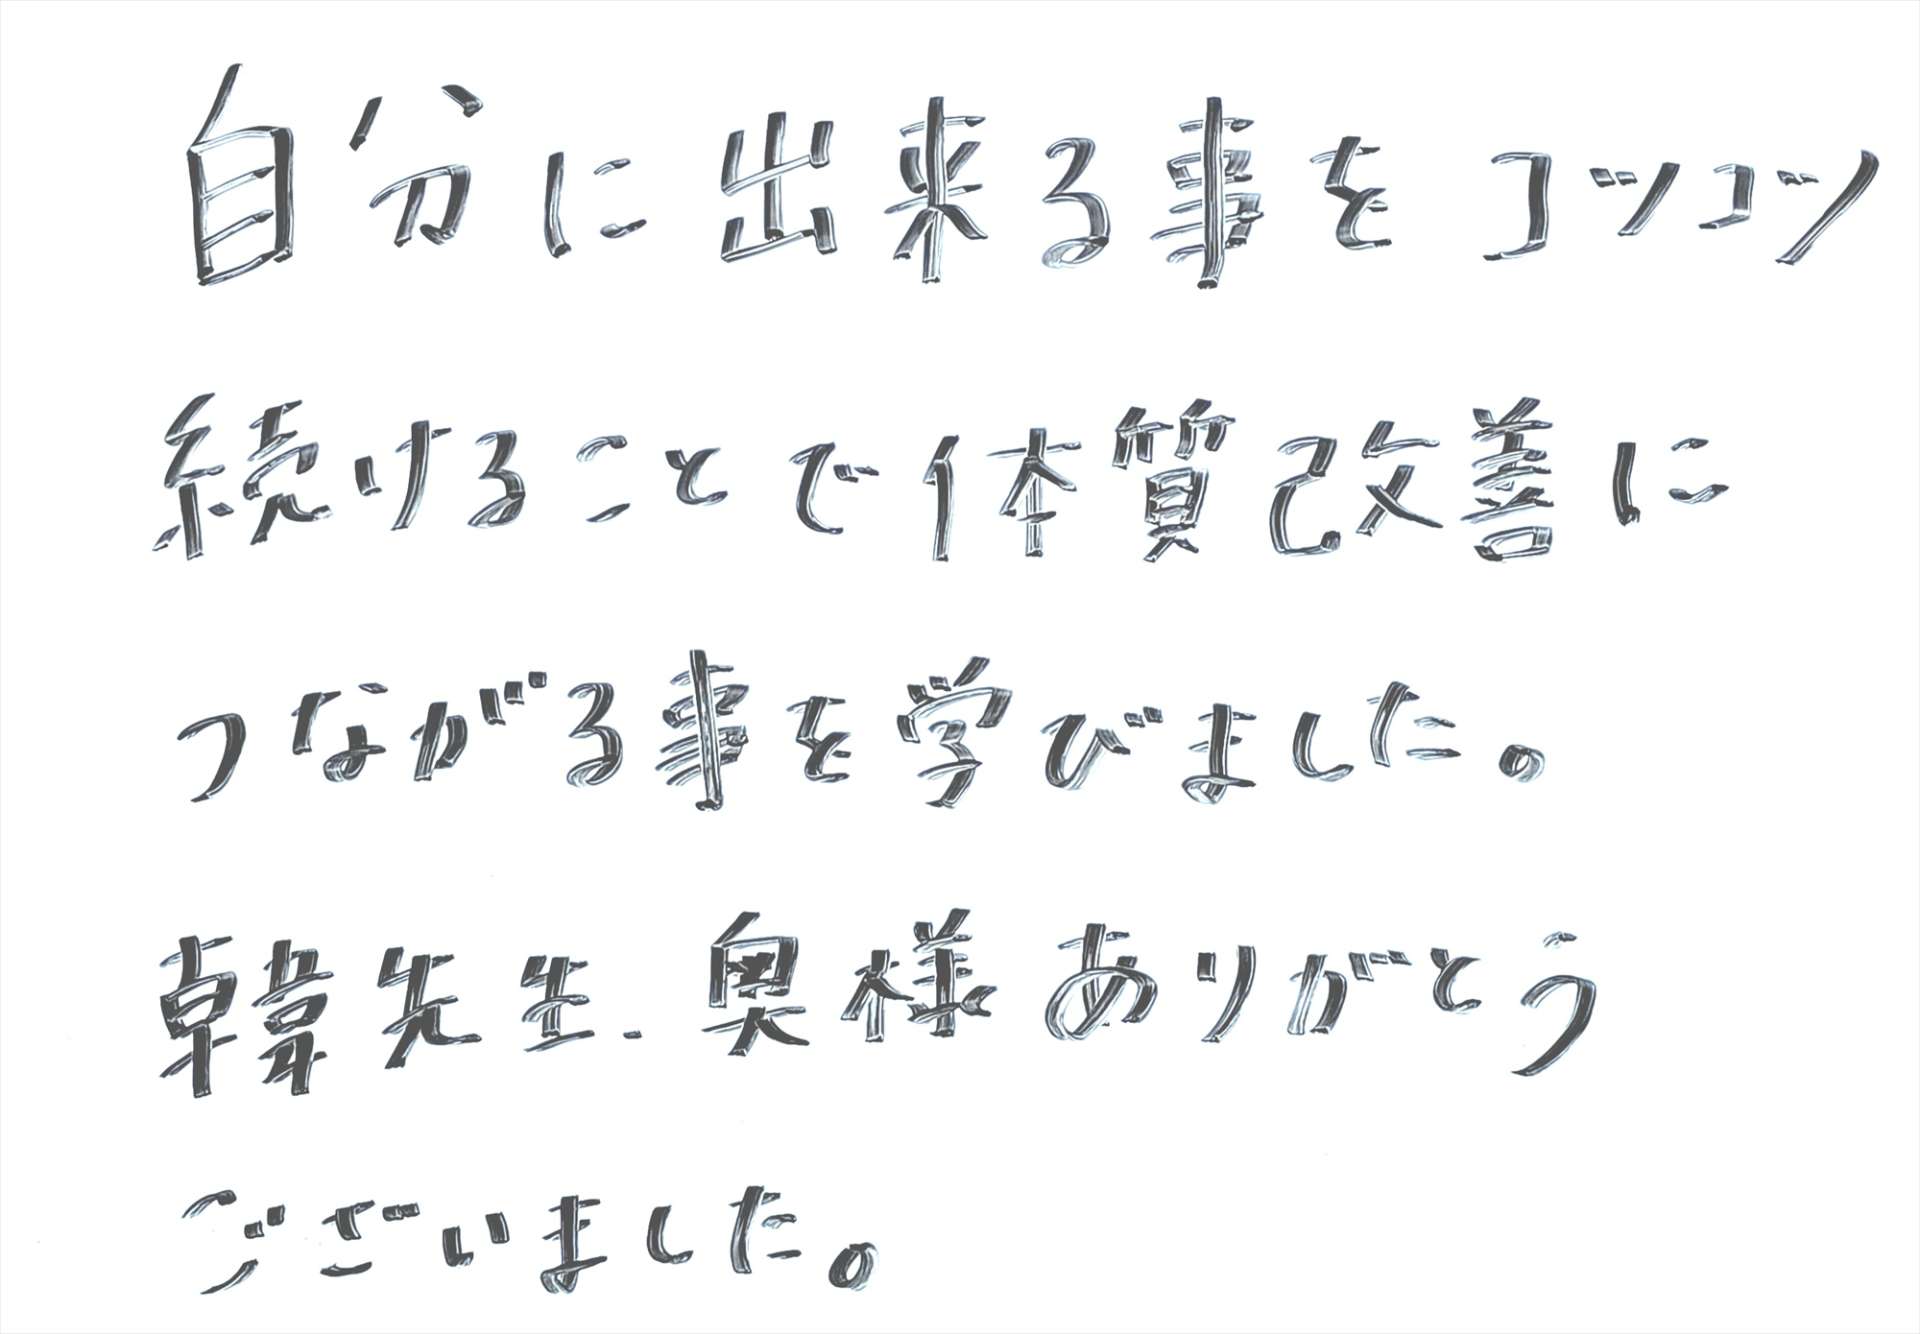 自分に出来る事をコツコツ
続けることで体質改善に
つながる事を学びました。
韓先生、奥様ありがとう
ございました。